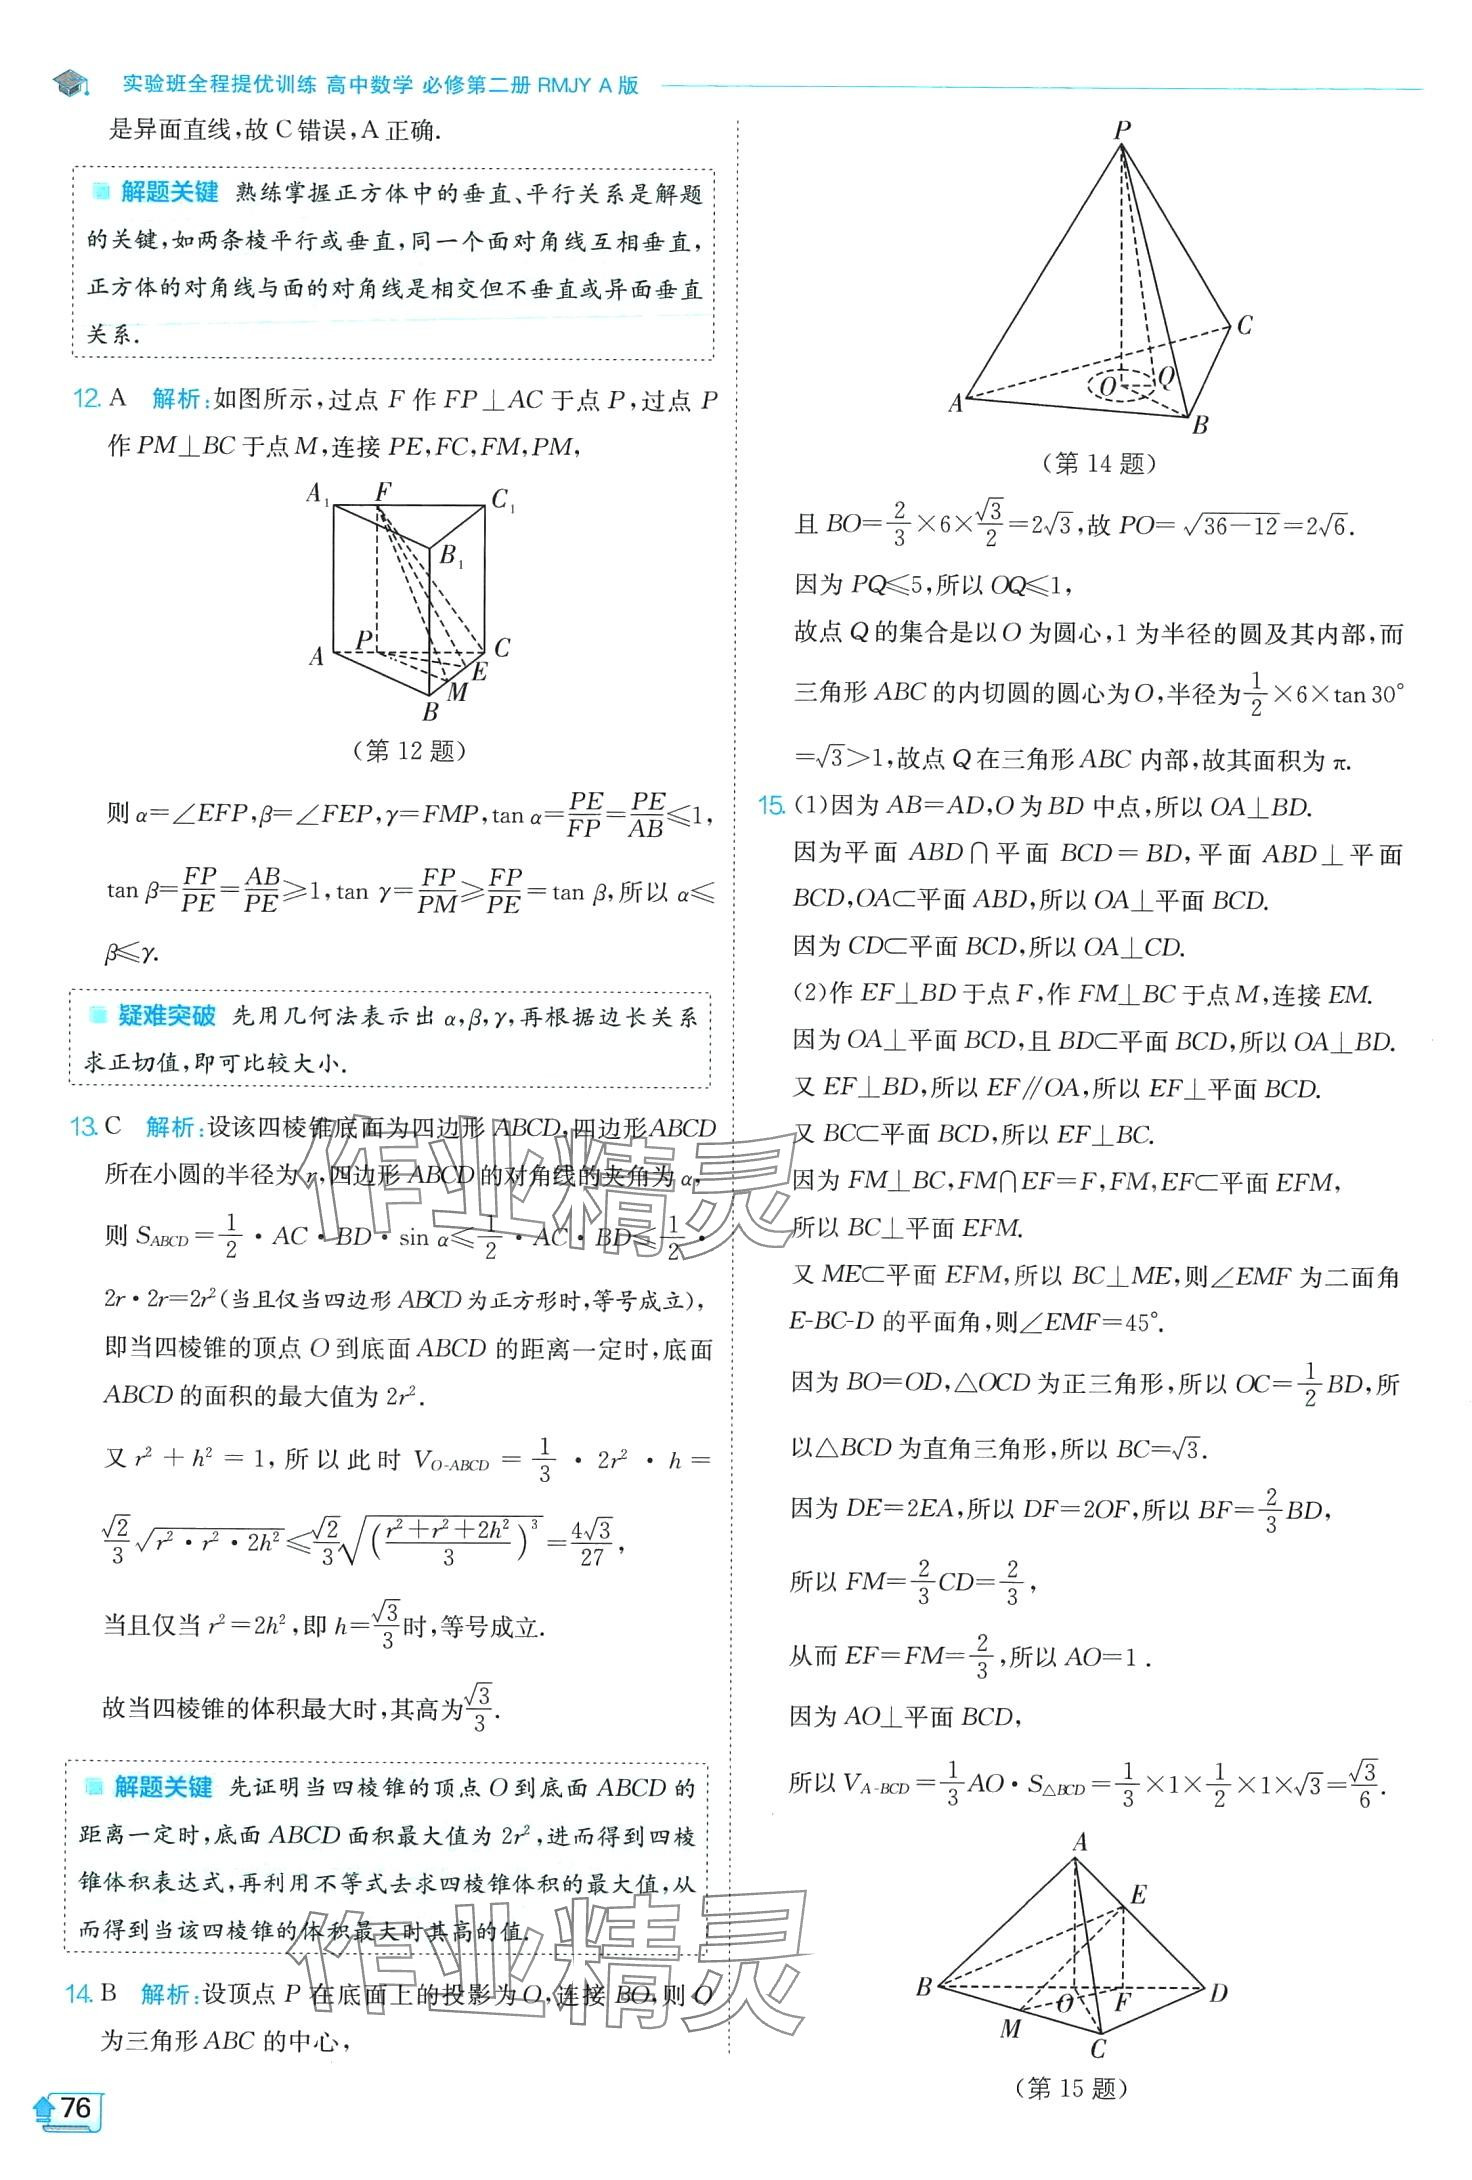 实验班全程提优训练 高中数学 必修第二册 RMJY A 版
是异面直线,故 C 错误,A 正确.
解题关键 熟练掌握正方体中的垂直、平行关系是解题
的关键,如两条棱平行或垂直,同一个面对角线互相垂直,
正方体的对角线与面的对角线是相交但不垂直或异面垂直
关系.
12. A 解析:如图所示,过点 F 作 FP⊥AC 于点 P,过点 P
作 PM⊥BC 于点 M,连接 PE,FC,FM,PM,
A₁ F C₁
B₁
A P C
E
M
B
(第 12 题)
则 α=∠EFP,β=∠FEP,γ=FMP,tan α=PE/FP=PE/AB≤1,
tan β=FP/PE=AB/PE≥1,tan γ=FP/PM≥FP/PE=tan β,所以 α≤
β≤γ.
疑难突破 先用几何法表示出 α,β,γ,再根据边长关系
求正切值,即可比较大小.
13. C 解析:设该四棱锥底面为四边形 ABCD,四边形ABCD
所在小圆的半径为 r,四边形 ABCD 的对角线的夹角为 α,
则 S_ABCD=1/2·AC·BD·sin α≤1/2·AC·BD≤1/2·
2r·2r=2r²(当且仅当四边形 ABCD 为正方形时,等号成立),
即当四棱锥的顶点 O 到底面 ABCD 的距离一定时,底面
ABCD 的面积的最大值为 2r².
又 r²+h²=1,所以此时 V_O-ABCD=1/3·2r²·h=
√2/3 √(r²·r²·2h²)≤√2/3 √(((r²+r²+2h²)/3)³)=4√3/27,
当且仅当 r²=2h²,即 h=√3/3时,等号成立.
故当四棱锥的体积最大时,其高为√3/3.
解题关键 先证明当四棱锥的顶点 O 到底面 ABCD 的
距离一定时,底面 ABCD 面积最大值为 2r²,进而得到四棱
锥体积表达式,再利用不等式去求四棱锥体积的最大值,从
而得到当该四棱锥的体积最大时其高的值.
14. B 解析:设顶点 P 在底面上的投影为 O,连接 BO,则 O
为三角形 ABC 的中心,
76
P
C
O Q
A
B
(第 14 题)
且 BO=2/3×6×√3/2=2√3,故 PO=√(36-12)=2√6.
因为 PQ≤5,所以 OQ≤1,
故点 Q 的集合是以 O 为圆心,1 为半径的圆及其内部,而
三角形 ABC 的内切圆的圆心为 O,半径为1/2×6×tan 30°
=√3>1,故点 Q 在三角形 ABC 内部,故其面积为 π.
15. (1)因为 AB=AD,O 为 BD 中点,所以 OA⊥BD.
因为平面 ABD∩平面 BCD=BD,平面 ABD⊥平面
BCD,OA⊂平面 ABD,所以 OA⊥平面 BCD.
因为 CD⊂平面 BCD,所以 OA⊥CD.
(2)作 EF⊥BD 于点 F,作 FM⊥BC 于点 M,连接 EM.
因为 OA⊥平面 BCD,且 BD⊂平面 BCD,所以 OA⊥BD.
又 EF⊥BD,所以 EF∥OA,所以 EF⊥平面 BCD.
又 BC⊂平面 BCD,所以 EF⊥BC.
因为 FM⊥BC,FM∩EF=F,FM,EF⊂平面 EFM,
所以 BC⊥平面 EFM.
又 ME⊂平面 EFM,所以 BC⊥ME,则∠EMF 为二面角
E-BC-D 的平面角,则∠EMF=45°.
因为 BO=OD,△OCD 为正三角形,所以 OC=1/2 BD,所
以△BCD 为直角三角形,所以 BC=√3.
因为 DE=2EA,所以 DF=2OF,所以 BF=2/3 BD,
所以 FM=2/3 CD=2/3,
从而 EF=FM=2/3,所以 AO=1.
因为 AO⊥平面 BCD,
所以 V_A-BCD=1/3 AO·S_△BCD=1/3×1×1/2×1×√3=√3/6.
A
E
B O F D
M
C
(第 15 题)
作业精灵
作业精灵